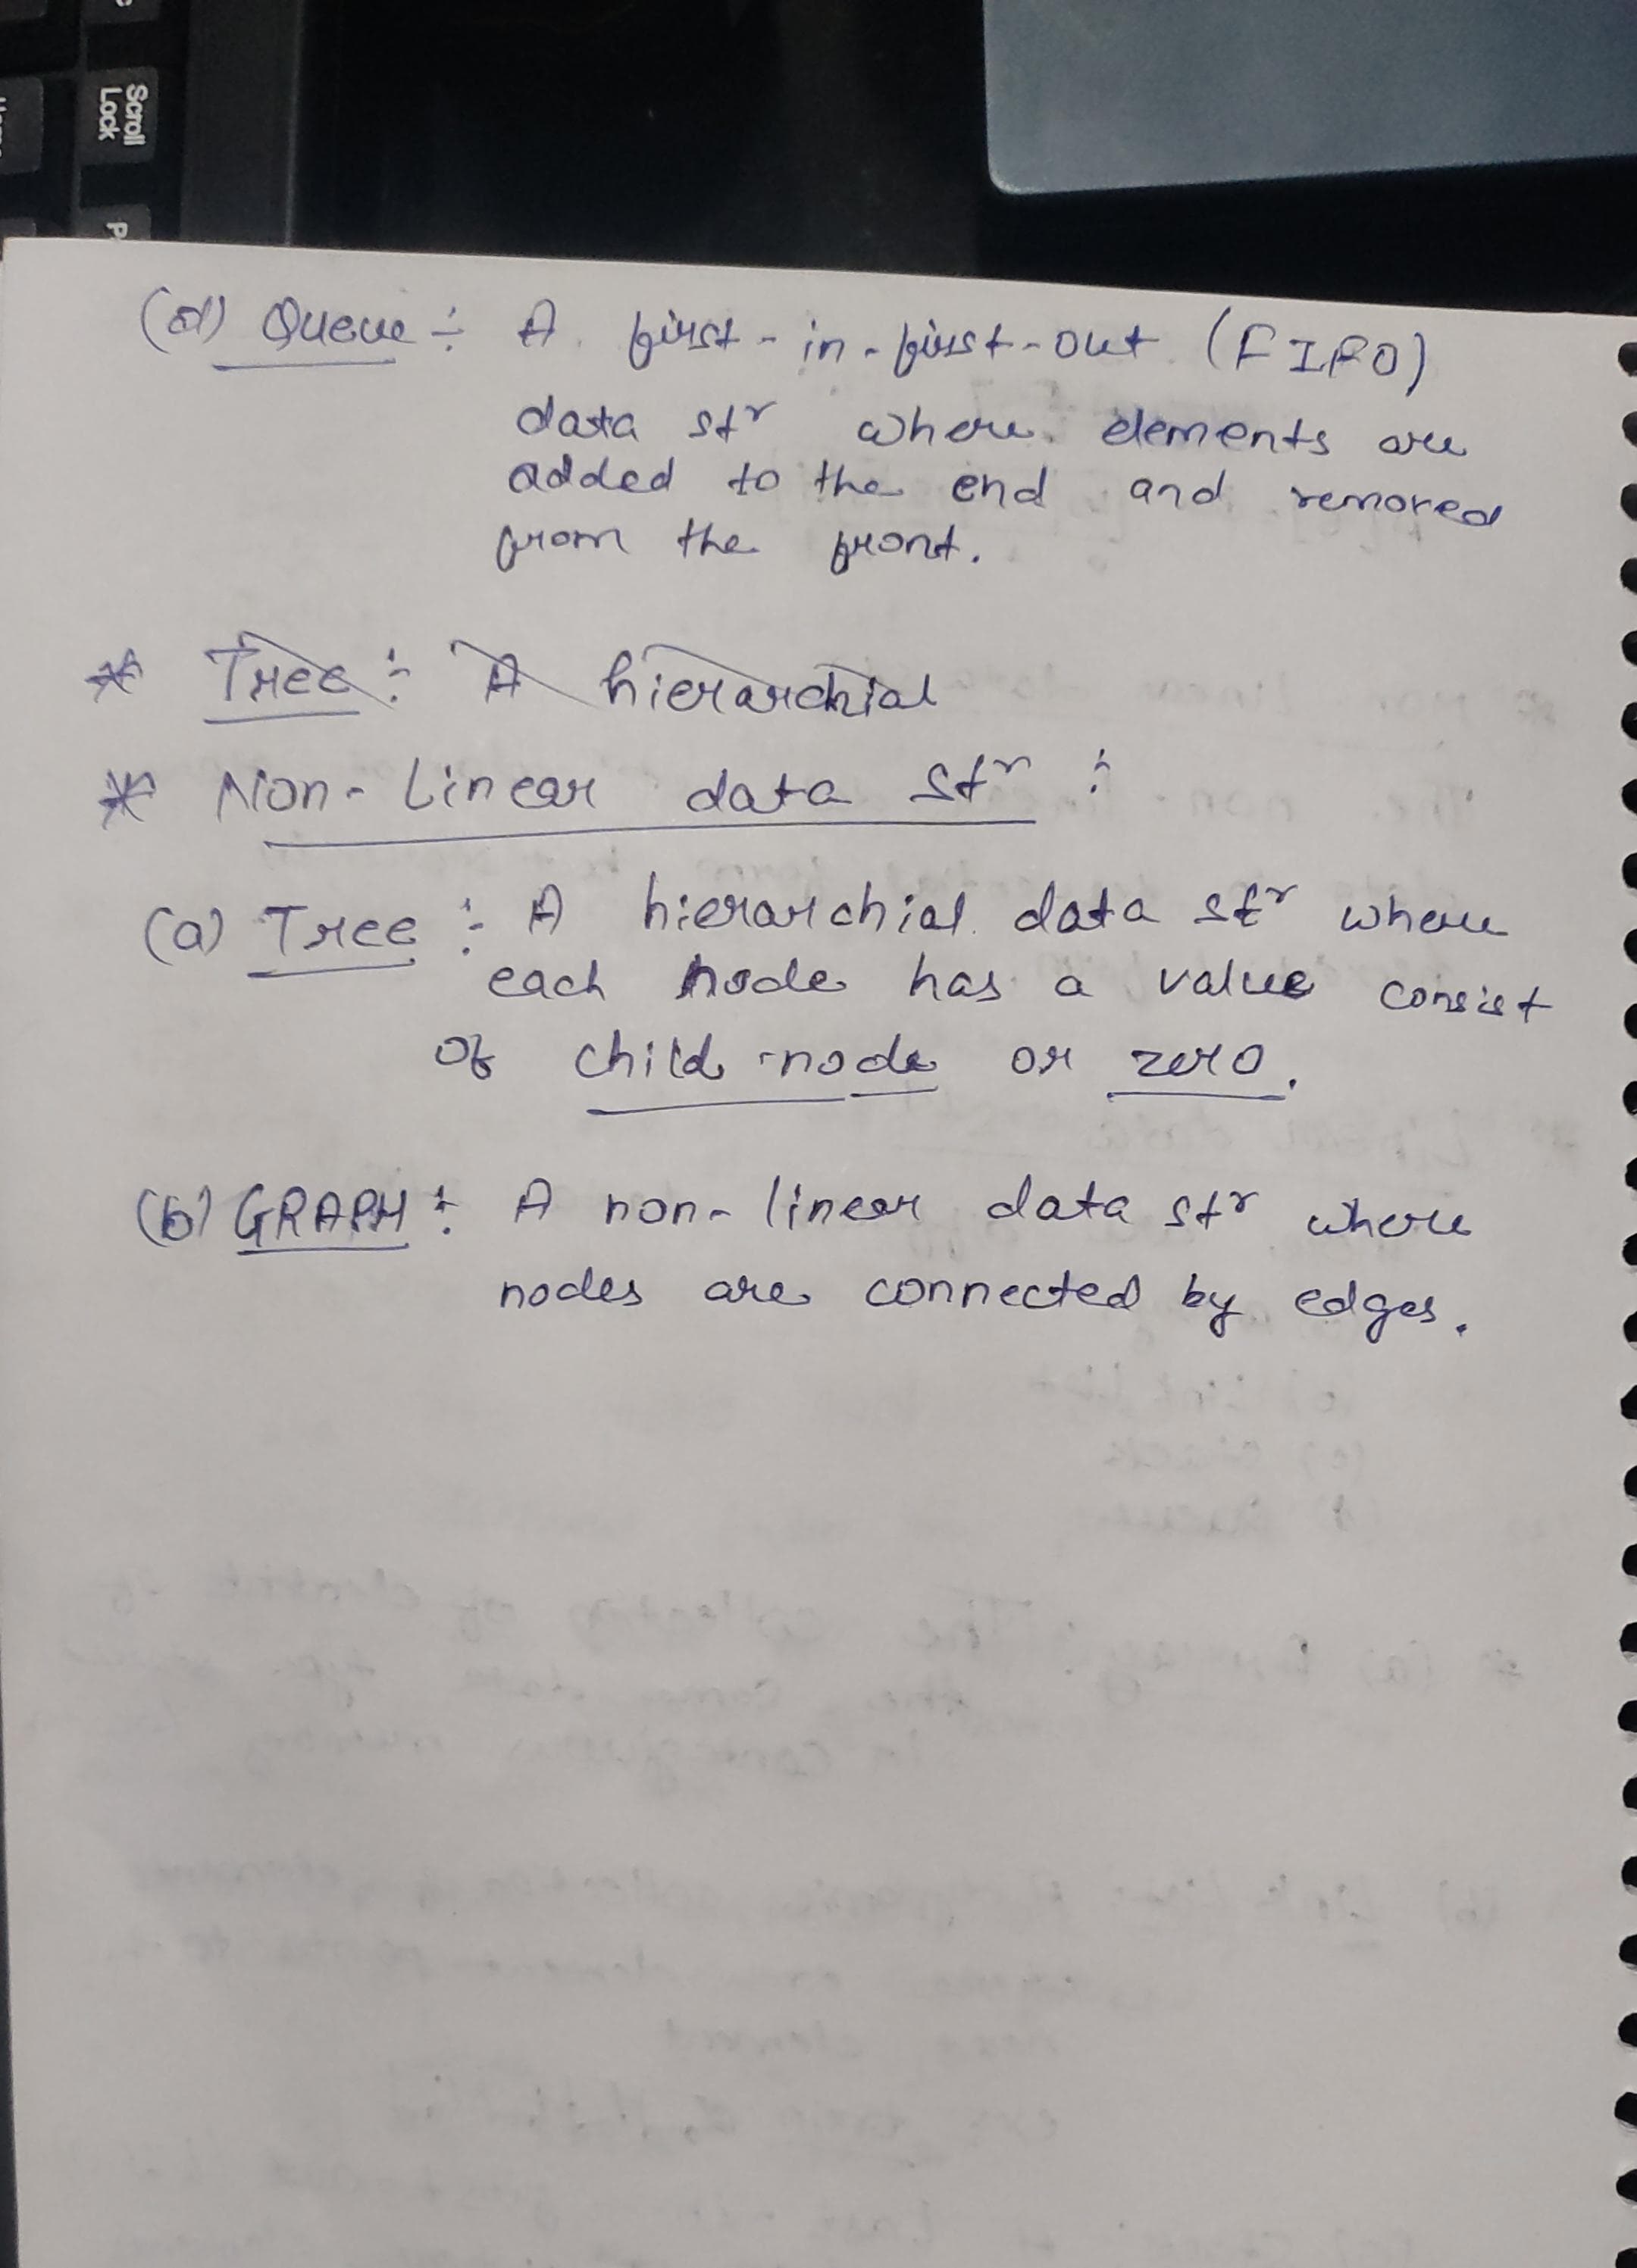 Scroll
Lock
(d) Queue ÷ A first-in-first-out (FIFO)
data stʳ where elements are
added to the end and removed
from the front.
* Tree ÷ A hierarchial
* Non-Linear data stʳ ÷
(a) Tree ÷ A hierarchial data stʳ where
each node has a value consist
of child node or zero.
(b) GRAPH ÷ A non-linear data stʳ where
nodes are connected by edges.